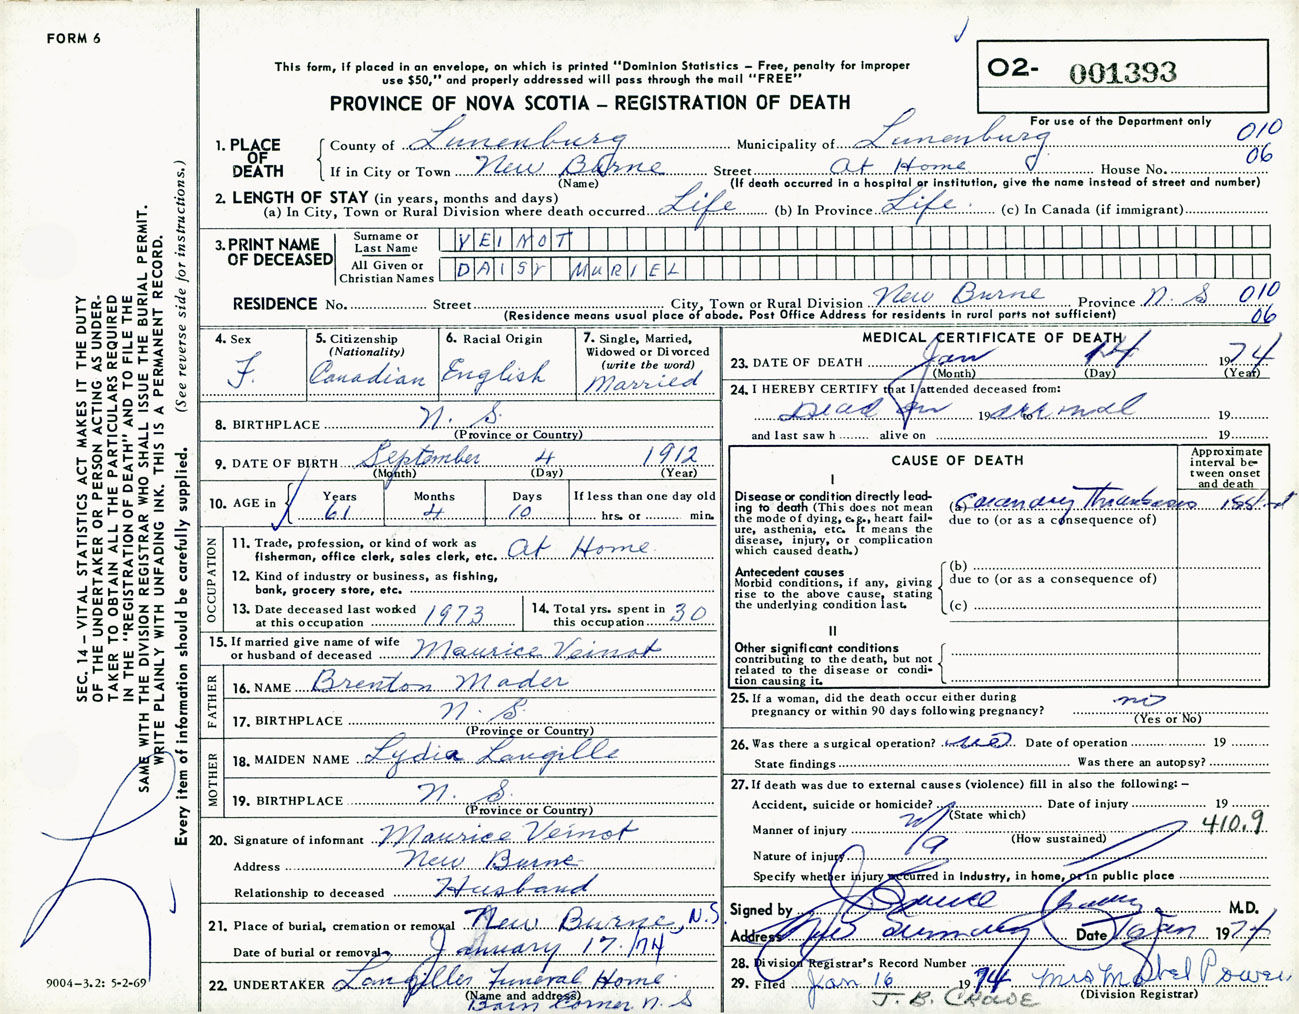 FORM 6
This form, if placed in an envelope, on which is printed "Dominion Statistics – Free, penalty for improper
use $50," and properly addressed will pass through the mail "FREE"
PROVINCE OF NOVA SCOTIA – REGISTRATION OF DEATH
02- 001393
For use of the Department only
1. PLACE OF DEATH County of Lunenburg Municipality of Lunenburg 010
If in City or Town New Burne Street At Home House No. 06
(Name) (If death occurred in a hospital or institution, give the name instead of street and number)
2. LENGTH OF STAY (in years, months and days)
(a) In City, Town or Rural Division where death occurred Life (b) In Province Life. (c) In Canada (if immigrant)
3. PRINT NAME OF DECEASED
Surname or Last Name VEINOT
All Given or Christian Names DAISY MURIEL
RESIDENCE No. Street City, Town or Rural Division New Burne Province N. S 010
(Residence means usual place of abode. Post Office Address for residents in rural parts not sufficient) 06
4. Sex F.
5. Citizenship (Nationality) Canadian
6. Racial Origin English
7. Single, Married, Widowed or Divorced (write the word) Married
8. BIRTHPLACE N. S.
(Province or Country)
9. DATE OF BIRTH September 4 1912
(Month) (Day) (Year)
10. AGE in Years 61 Months 4 Days 10 If less than one day old
hrs. or min.
OCCUPATION
11. Trade, profession, or kind of work as
fisherman, office clerk, sales clerk, etc. At Home
12. Kind of industry or business, as fishing,
bank, grocery store, etc.
13. Date deceased last worked
at this occupation 1973
14. Total yrs. spent in
this occupation 30
15. If married give name of wife
or husband of deceased Maurice Veinot
FATHER
16. NAME Brenton Mader
17. BIRTHPLACE N. S.
(Province or Country)
MOTHER
18. MAIDEN NAME Lydia Langille
19. BIRTHPLACE N. S.
(Province or Country)
20. Signature of informant Maurice Veinot
Address New Burne
Relationship to deceased Husband
21. Place of burial, cremation or removal New Burne, N.S.
Date of burial or removal January 17./74
22. UNDERTAKER Langilles Funeral Home
(Name and address)
Barss Corner N. S
MEDICAL CERTIFICATE OF DEATH
23. DATE OF DEATH Jan 14 1974
(Month) (Day) (Year)
24. I HEREBY CERTIFY that I attended deceased from:
Dead on 19 to arrival 19
and last saw h alive on 19
CAUSE OF DEATH
Approximate interval between onset and death
I
Disease or condition directly lead-
ing to death (This does not
mean the mode of dying, e.g., heart fail-
ure, asthenia, etc. It means the
disease, injury, or complication
which caused death.)
(a) Coronary Thrombosis
due to (or as a consequence of)
Antecedent causes
Morbid conditions, if any, giving
rise to the above cause, stating
the underlying condition last.
(b)
due to (or as a consequence of)
(c)
II
Other significant conditions
contributing to the death, but not
related to the disease or condi-
tion causing it.
25. If a woman, did the death occur either during
pregnancy or within 90 days following pregnancy? no
(Yes or No)
26. Was there a surgical operation? Date of operation 19
State findings Was there an autopsy?
27. If death was due to external causes (violence) fill in also the following: –
Accident, suicide or homicide? Date of injury 19
(State which)
Manner of injury 410.9
(How sustained)
Nature of injury
Specify whether injury occurred in industry, in home, or in public place
Signed by M.D.
Address Date Jan 1974
28. Division Registrar's Record Number
29. Filed Jan 16 1974 Mrs Mabel Powers
(Division Registrar)
SEC. 14 – VITAL STATISTICS ACT MAKES IT THE DUTY
OF THE UNDERTAKER OR PERSON ACTING AS UNDER-
TAKER TO OBTAIN ALL THE PARTICULARS REQUIRED
IN THE "REGISTRATION OF DEATH" AND TO FILE THE
SAME WITH THE DIVISION REGISTRAR WHO SHALL ISSUE THE BURIAL PERMIT.
WRITE PLAINLY WITH UNFADING INK. THIS IS A PERMANENT RECORD.
Every item of information should be carefully supplied. (See reverse side for instructions.)
9004-3.2: 5-2-69